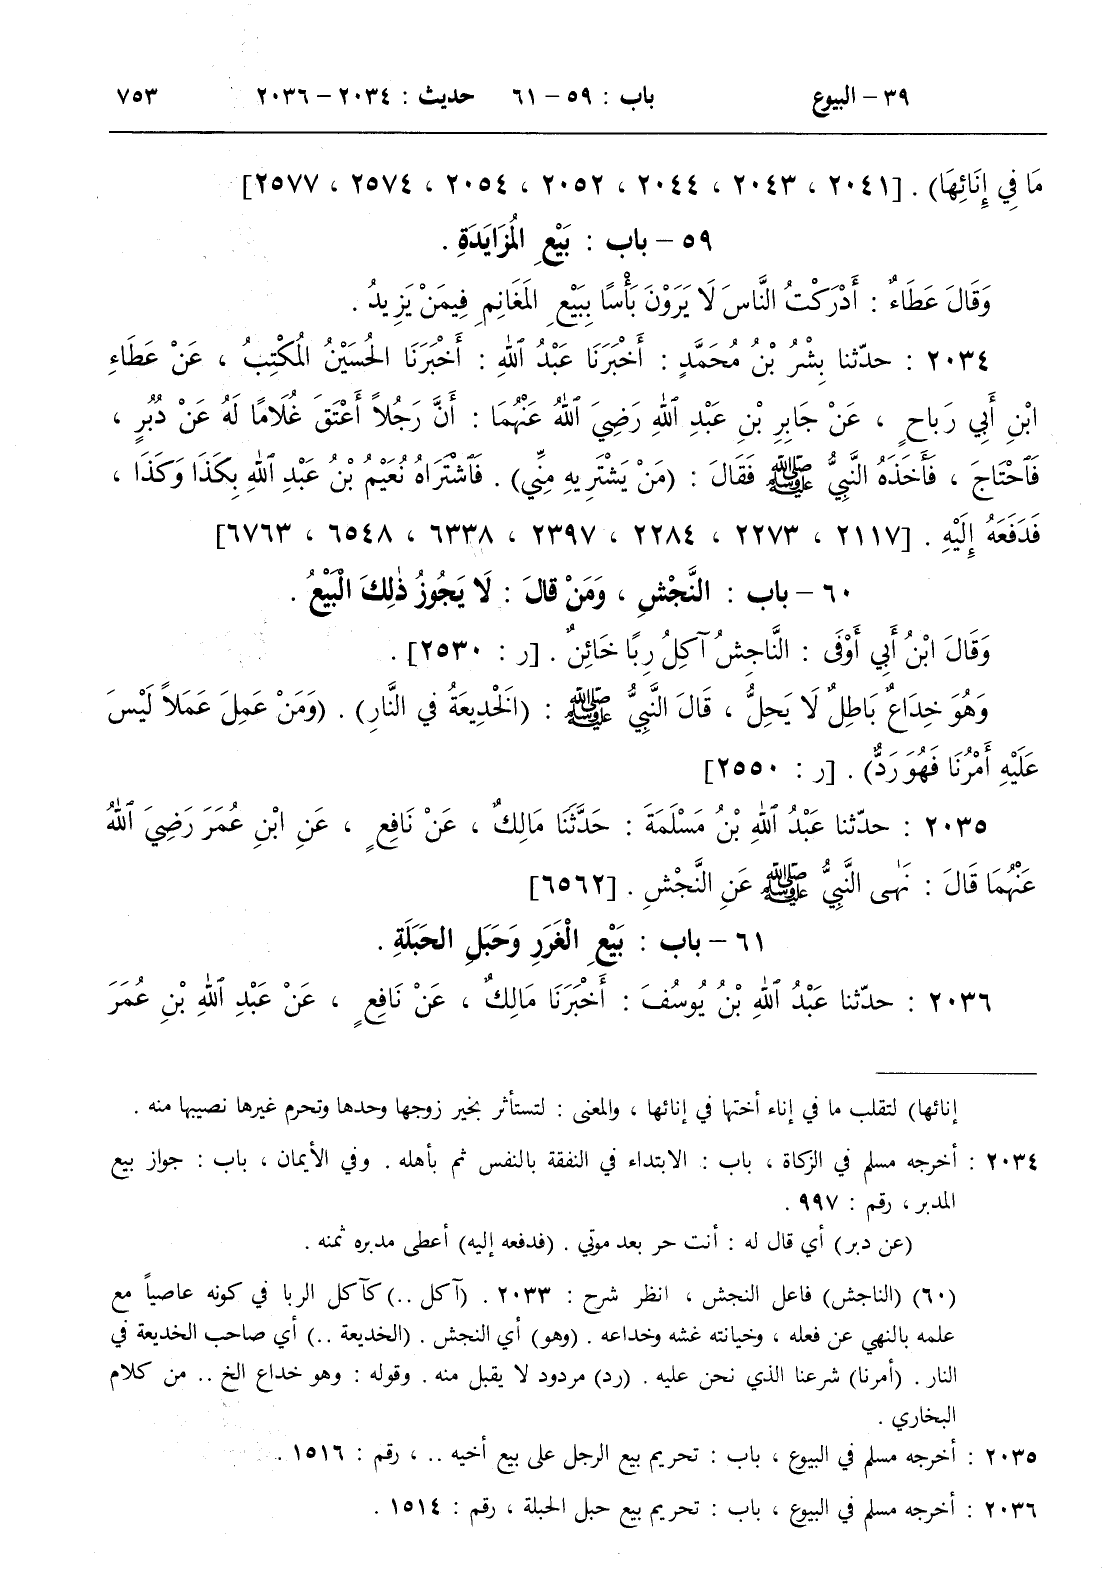 ٣٩ – البيوع باب : ٥٩ – ٦١ حديث : ٢٠٣٤ – ٢٠٣٦ ٧٥٣
مَا فِي إِنَائِهَا) . [٢٠٤١ ، ٢٠٤٣ ، ٢٠٤٤ ، ٢٠٥٢ ، ٢٠٥٤ ، ٢٥٧٤ ، ٢٥٧٧]
٥٩ – باب : بَيْعِ الْمُزَايَدَةِ .
وَقَالَ عَطَاءٌ : أَدْرَكْتُ النَّاسَ لَا يَرَوْنَ بَأْسًا بِبَيْعِ الْمَغَانِمِ فِيمَنْ يَزِيدُ .
٢٠٣٤ : حدّثنا بِشْرُ بْنُ مُحَمَّدٍ : أَخْبَرَنَا عَبْدُ ٱللهِ : أَخْبَرَنَا الحُسَيْنُ الْمُكْتِبُ ، عَنْ عَطَاءِ
ابْنِ أَبِي رَبَاحٍ ، عَنْ جَابِرِ بْنِ عَبْدِ ٱللهِ رَضِيَ ٱللهُ عَنْهُمَا : أَنَّ رَجُلاً أَعْتَقَ غُلَامًا لَهُ عَنْ دُبُرٍ ،
فَٱحْتَاجَ ، فَأَخَذَهُ النَّبِيُّ ﷺ فَقَالَ : (مَنْ يَشْتَرِيهِ مِنِّي) . فَٱشْتَرَاهُ نُعَيْمُ بْنُ عَبْدِ ٱللهِ بِكَذَا وَكَذَا ،
فَدَفَعَهُ إِلَيْهِ . [٢١١٧ ، ٢٢٧٣ ، ٢٢٨٤ ، ٢٣٩٧ ، ٦٣٣٨ ، ٦٥٤٨ ، ٦٧٦٣]
٦٠ – باب : النَّجْشِ ، وَمَنْ قالَ : لَا يَجُوزُ ذٰلِكَ الْبَيْعُ .
وَقَالَ ابْنُ أَبِي أَوْفَى : النَّاجِشُ آكِلُ رِبًا خَائِنٌ . [ر : ٢٥٣٠] .
وَهُوَ خِدَاعٌ بَاطِلٌ لَا يَحِلُّ ، قَالَ النَّبِيُّ ﷺ : (الْخَدِيعَةُ في النَّارِ) . (وَمَنْ عَمِلَ عَمَلاً لَيْسَ
عَلَيْهِ أَمْرُنَا فَهُوَ رَدٌّ) . [ر : ٢٥٥٠]
٢٠٣٥ : حدّثنا عَبْدُ ٱللهِ بْنُ مَسْلَمَةَ : حَدَّثَنَا مَالِكٌ ، عَنْ نَافِعٍ ، عَنِ ابْنِ عُمَرَ رَضِيَ ٱللهُ
عَنْهُمَا قَالَ : نَهٰى النَّبِيُّ ﷺ عَنِ النَّجْشِ . [٦٥٦٢]
٦١ – باب : بَيْعِ الْغَرَرِ وَحَبَلِ الحَبَلَةِ .
٢٠٣٦ : حدّثنا عَبْدُ ٱللهِ بْنُ يُوسُفَ : أَخْبَرَنَا مَالِكٌ ، عَنْ نَافِعٍ ، عَنْ عَبْدِ ٱللهِ بْنِ عُمَرَ
إنائها) لتقلب ما في إناء أختها في إنائها ، والمعنى : لتستأثر بخير زوجها وحدها وتحرم غيرها نصيبها منه .
٢٠٣٤ : أخرجه مسلم في الزكاة ، باب : الابتداء في النفقة بالنفس ثم بأهله . وفي الأيمان ، باب : جواز بيع
المدبر ، رقم : ٩٩٧ .
(عن دبر) أي قال له : أنت حر بعد موتي . (فدفعه إليه) أعطى مدبره ثمنه .
(٦٠) (الناجش) فاعل النجش ، انظر شرح : ٢٠٣٣ . (آكل ..) كآكل الربا في كونه عاصياً مع
علمه بالنهي عن فعله ، وخيانته غشه وخداعه . (وهو) أي النجش . (الخديعة ..) أي صاحب الخديعة في
النار . (أمرنا) شرعنا الذي نحن عليه . (رد) مردود لا يقبل منه . وقوله : وهو خداع الخ .. من كلام
البخاري .
٢٠٣٥ : أخرجه مسلم في البيوع ، باب : تحريم بيع الرجل على بيع أخيه .. ، رقم : ١٥١٦ .
٢٠٣٦ : أخرجه مسلم في البيوع ، باب : تحريم بيع حبل الحبلة ، رقم : ١٥١٤ .